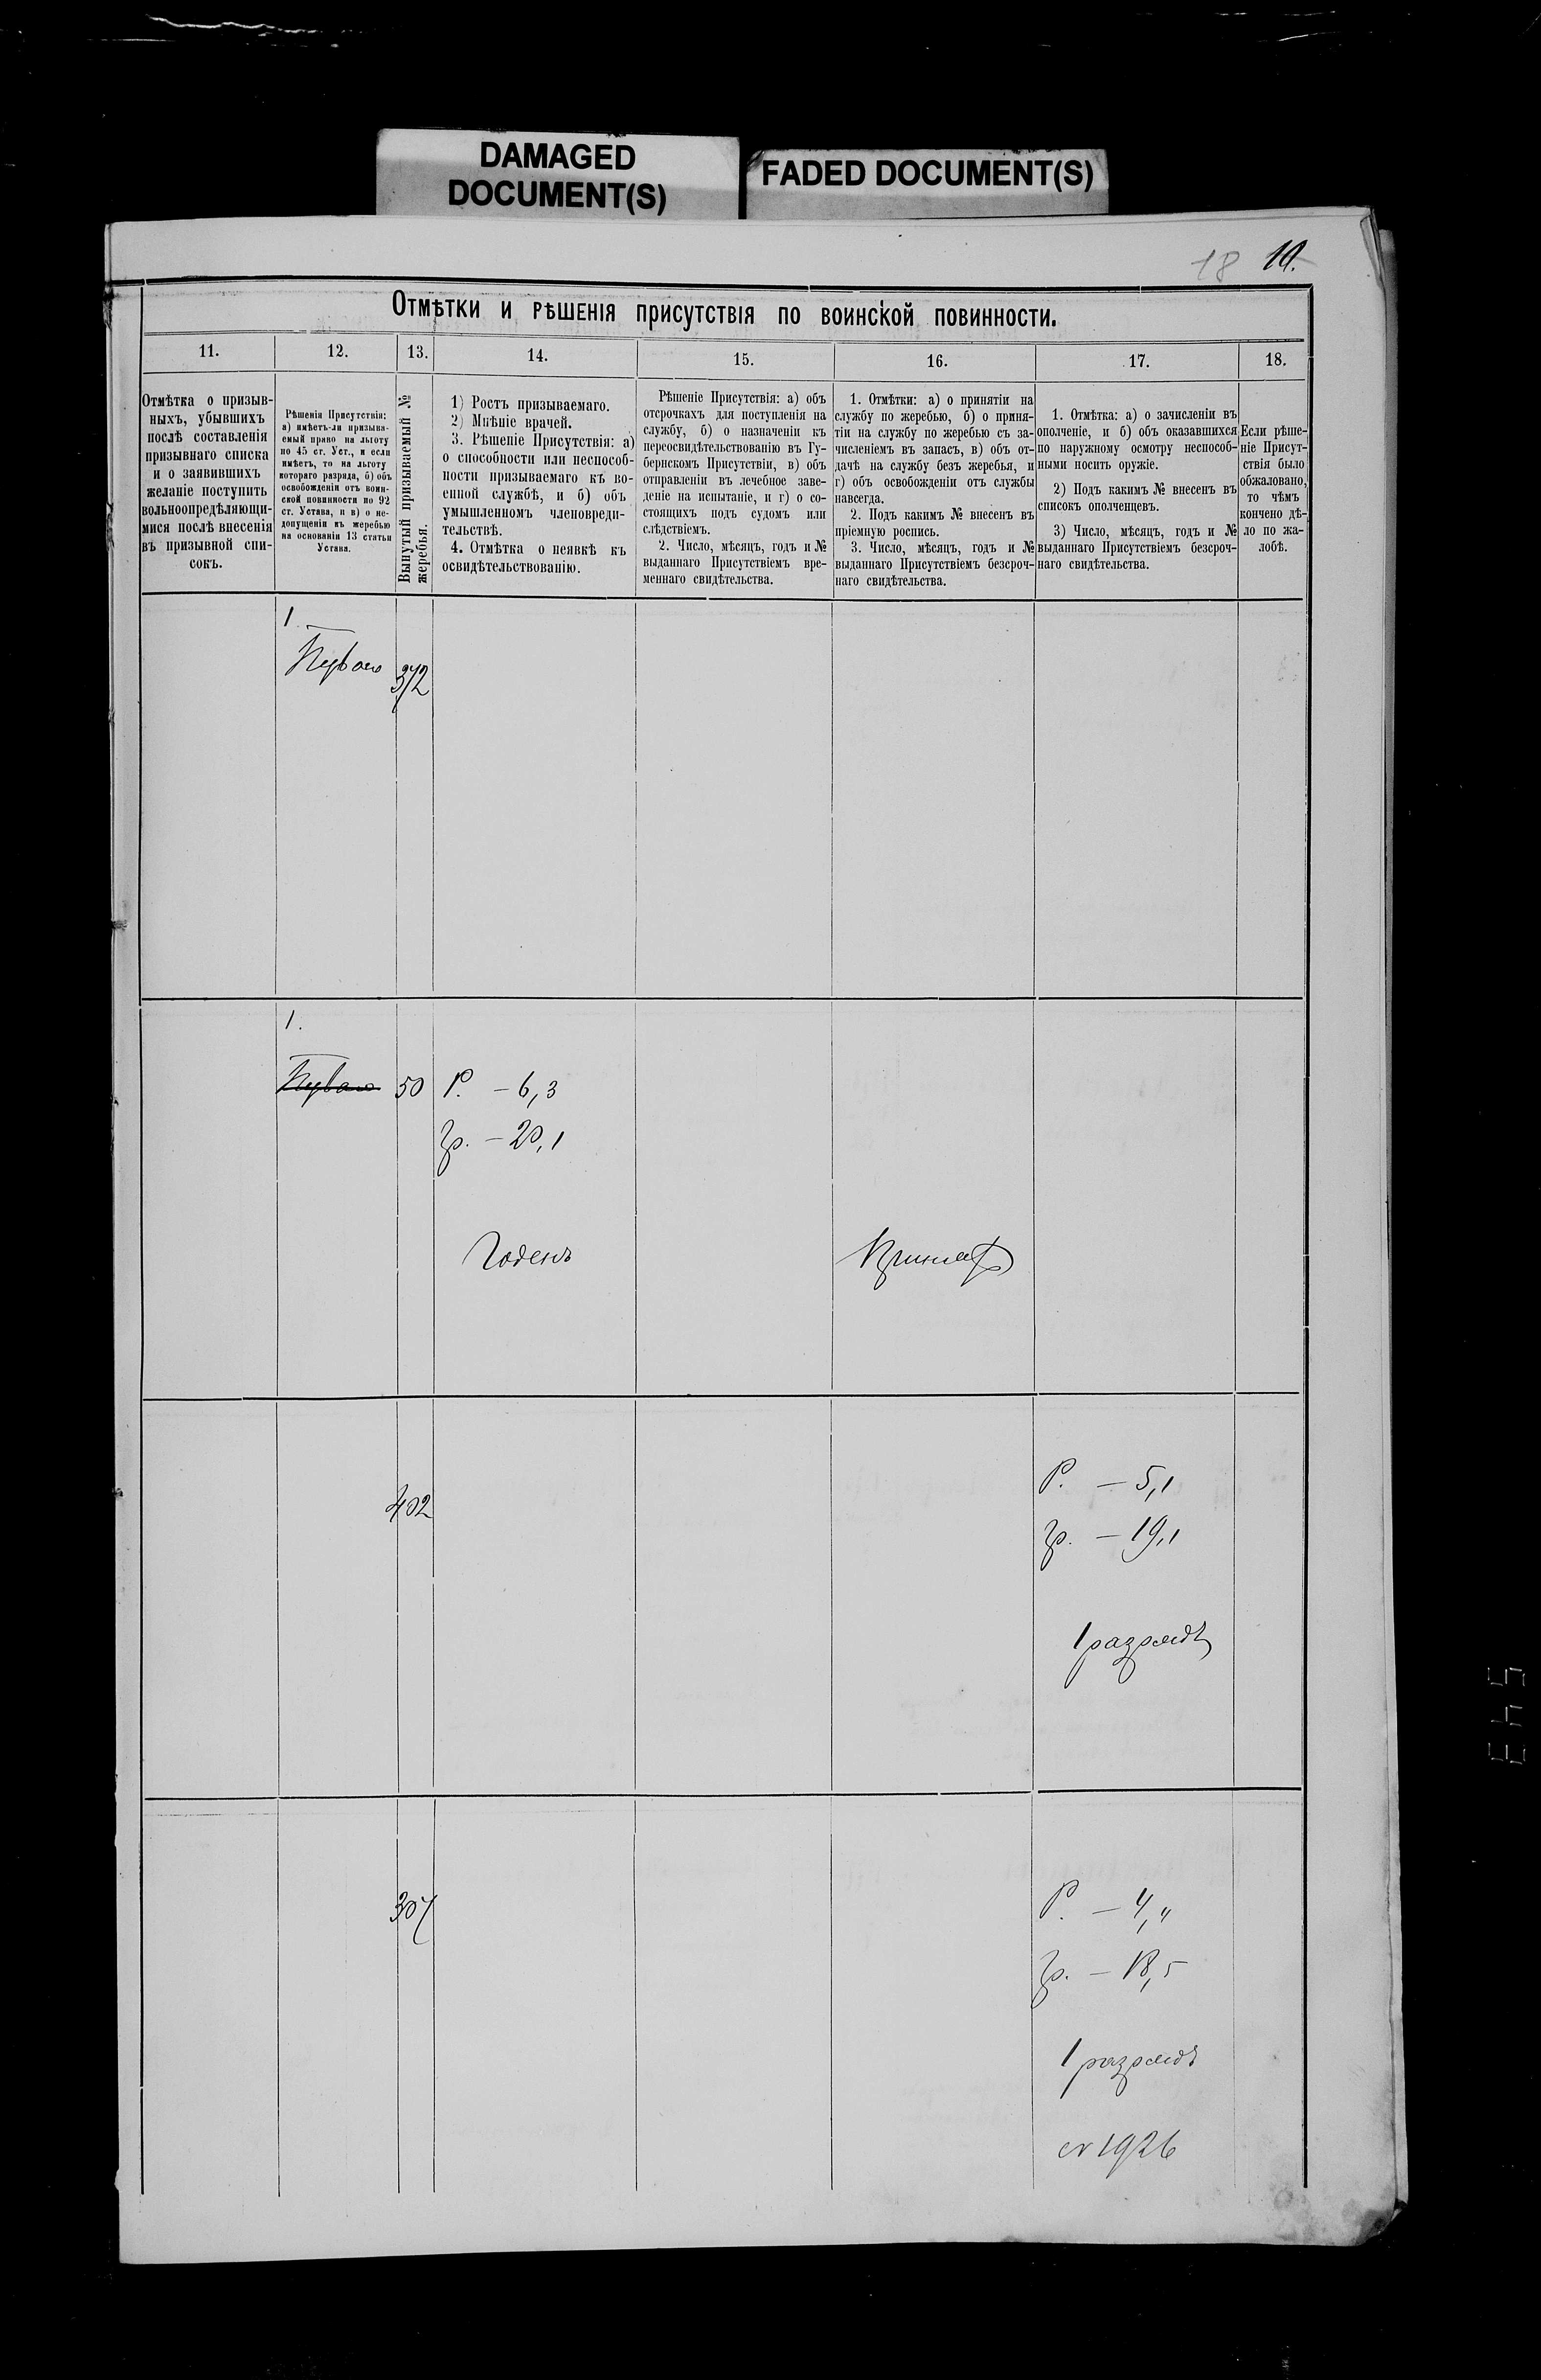 DAMAGED
DOCUMENT(S)
FADED DOCUMENT(S)
18 19.
Отмѣтки и рѣшенія присутствія по воинской повинности.
11.
12.
13.
14.
15.
16.
17.
18.
Отмѣтка о призыв-
ныхъ, убывшихъ
послѣ составленія
призывнаго списка
и о заявившихъ
желаніе поступить
вольноопредѣляющи-
мися послѣ внесенія
въ призывной спи-
сокъ.
Рѣшенія Присутствія:
а) имѣетъ-ли призыва-
емый право на льготу
по 45 ст. Уст., и если
имѣетъ, то на льготу
котораго разряда, б) объ
освобожденіи отъ воин-
ской повинности по 92
ст. Устава, и в) о не-
допущеніи къ жеребью
на основаніи 13 статьи
Устава.
Вынутый призываемый №
жеребья.
1) Ростъ призываемаго.
2) Мнѣніе врачей.
3. Рѣшеніе Присутствія: а)
о способности или неспособ-
ности призываемаго къ во-
енной службѣ, и б) объ
умышленномъ членовреди-
тельствѣ.
4. Отмѣтка о неявкѣ къ
освидѣтельствованію.
Рѣшеніе Присутствія: а) объ
отсрочкахъ для поступленія на
службу, б) о назначеніи къ
переосвидѣтельствованію въ Гу-
бернскомъ Присутствіи, в) объ
отправленіи въ лечебное заве-
деніе на испытаніе, и г) о со-
стоящихъ подъ судомъ или
слѣдствіемъ.
2. Число, мѣсяцъ, годъ и №
выданнаго Присутствіемъ вре-
меннаго свидѣтельства.
1. Отмѣтки: а) о принятіи на
службу по жеребью, б) о приня-
тіи на службу по жеребью съ за-
численіемъ въ запасъ, в) объ от-
дачѣ на службу безъ жеребья, и
г) объ освобожденіи отъ службы
навсегда.
2. Подъ какимъ № внесенъ въ
пріемную роспись.
3. Число, мѣсяцъ, годъ и №
выданнаго Присутствіемъ безсроч-
наго свидѣтельства.
1. Отмѣтка: а) о зачисленіи въ
ополченіе, и б) объ оказавшихся
по наружному осмотру неспособ-
ными носить оружіе.
2) Подъ какимъ № внесенъ въ
списокъ ополченцевъ.
3) Число, мѣсяцъ, годъ и №
выданнаго Присутствіемъ безсроч-
наго свидѣтельства.
Если рѣше-
ніе Присут-
ствія было
обжаловано,
то чѣмъ
кончено дѣ-
ло по жа-
лобѣ.
1
372
1.
50
Р. — 6,3
Гр. — 20,1
Годенъ
Принятъ
402
Р. — 5,1
Гр. — 19,1
1 разрядъ
307
Р. — 4,4
Гр. — 18,5
1 разрядъ
№ 1926
543